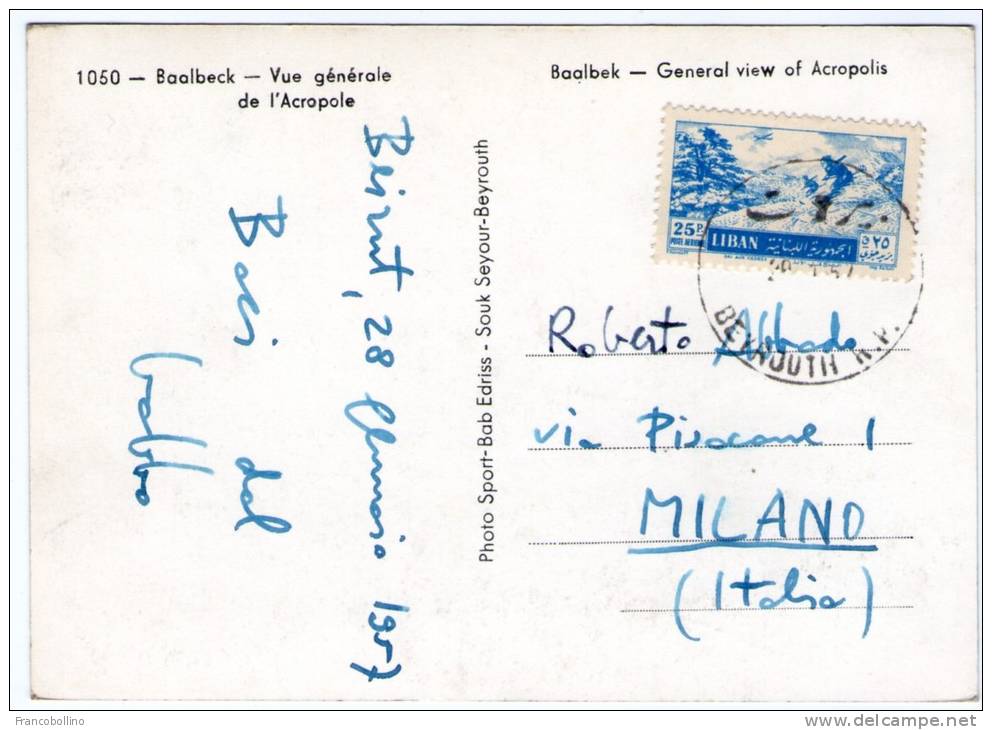 1050 — Baalbeck — Vue générale
de l'Acropole
Baalbek — General view of Acropolis
Beirut, 28 Gennaio 1957
Baci dal
babbo
Photo Sport-Bab Edriss - Souk Seyour-Beyrouth
25P.
POSTE AERIENNE
LIBAN
الجمهورية اللبنانية
٢٥
بيروت
BEYROUTH R.P.
Roberto Abbado
via Pisacane 1
MILANO
(Italia)
Francobollino
www.delcampe.net